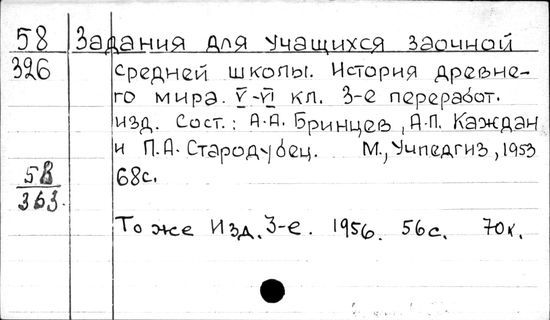 58 Задания для учащихся заочной
326 средней школы. История древне-
го мира. V-VI кл. 3-е переработ.
изд. Сост.: А.А. Бринцев, А.П. Каждан
и П.А. Стародубец. М., Учпедгиз, 1953
58 68с.
363.
То же Изд. 3-е. 1956. 56с. 70к.